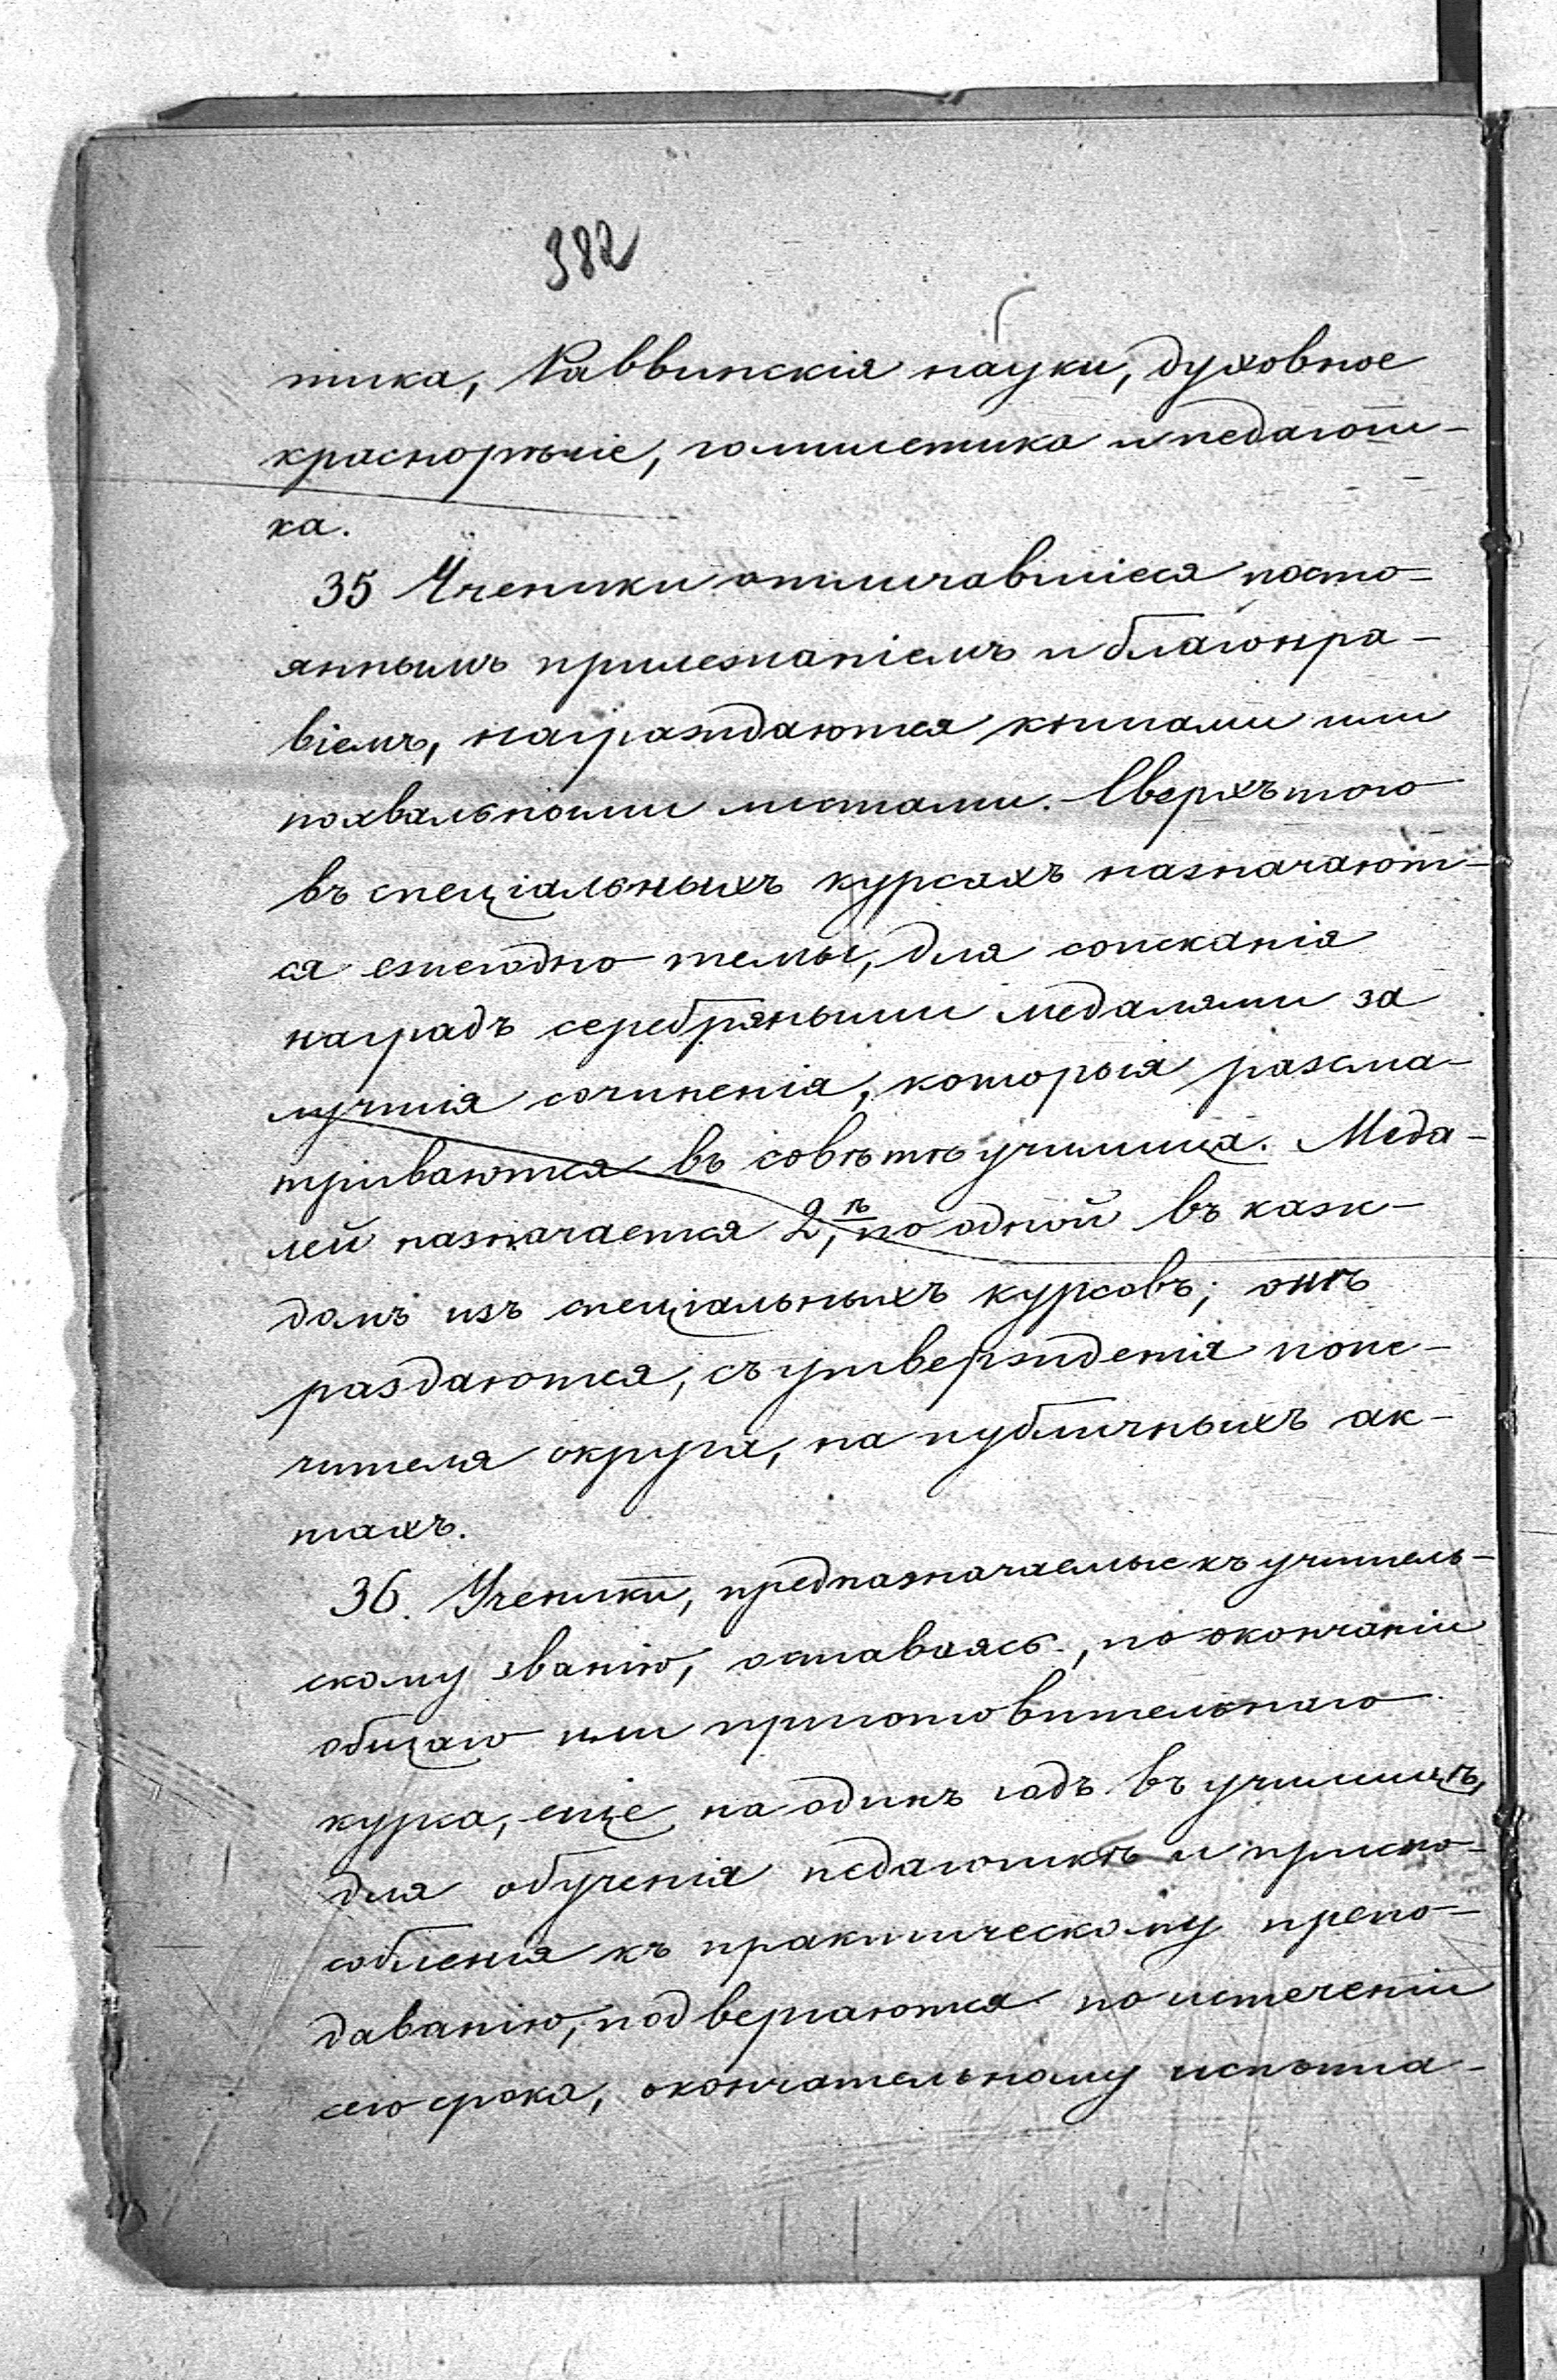 382
тика, Раввинскія науки, духовное
краснорѣчіе, гомилетика и педагоги-
ка.
35 Ученики отличавшіеся посто-
яннымъ прилежаніемъ и благонра-
віемъ, награждаются книгами или
похвальными листами. Сверхъ того
въ спеціальныхъ курсахъ назначают-
ся ежегодно темы, для соисканія
наградъ серебряными медалями за
лучшія сочиненія, которыя разсма-
триваются въ совѣтѣ училища. Меда-
лей назначается 2ѣ, по одной въ каж-
домъ изъ спеціальныхъ курсовъ; онѣ
раздаются, съ утвержденія попе-
чителя округа, на публичныхъ ак-
тахъ.
36. Ученики, предназначаемые къ учитель-
скому званію, оставаясь, по окончаніи
общаго или приготовительнаго
курса, еще на одинъ годъ въ училищѣ,
для обученія педагогикѣ и приспо-
собленія къ практическому препо-
даванію, подвергаются по истеченіи
сего срока, окончательному испыта-